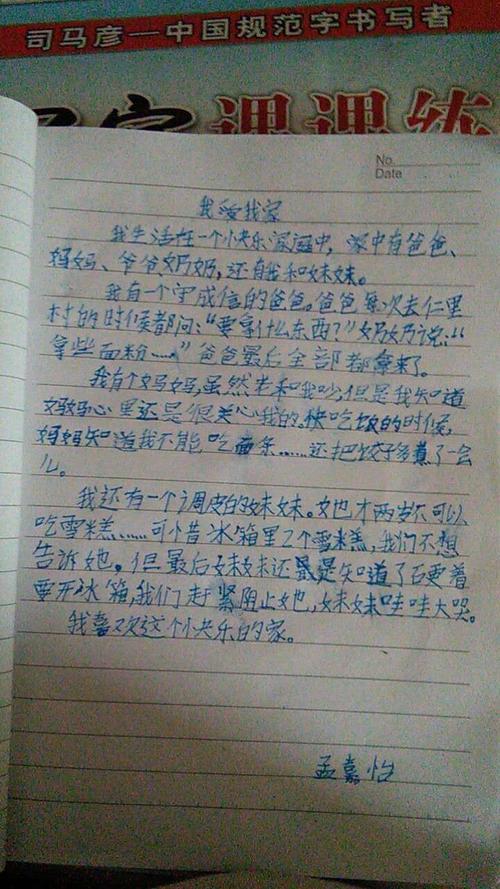 司马彦—中国规范字书写者
写字课课练
No.
Date
我爱我家
我生活在一个小快乐家庭中,家中有爸爸、
妈妈、爷爷奶奶,还有我和妹妹。
我有一个守成信的爸爸。爸爸每次去仁里
村的时候都问:“要拿什么东西?”奶奶说:“
拿些面粉……”爸爸最后全部都拿来了。
我有个妈妈,虽然老和我吵,但是我知道
妈妈心里还是很关心我的。快吃饭的时候,
妈妈知道我不能吃面条……还把饺子多煮了一会
儿。
我还有一个调皮的妹妹。她才两岁不可以
吃雪糕……可惜冰箱里2个雪糕,我们不想
告诉她。但最后妹妹还是知道了石更着
要开冰箱,我们赶紧阻止她,妹妹哇哇大哭。
我喜欢这个小快乐的家。
孟嘉怡